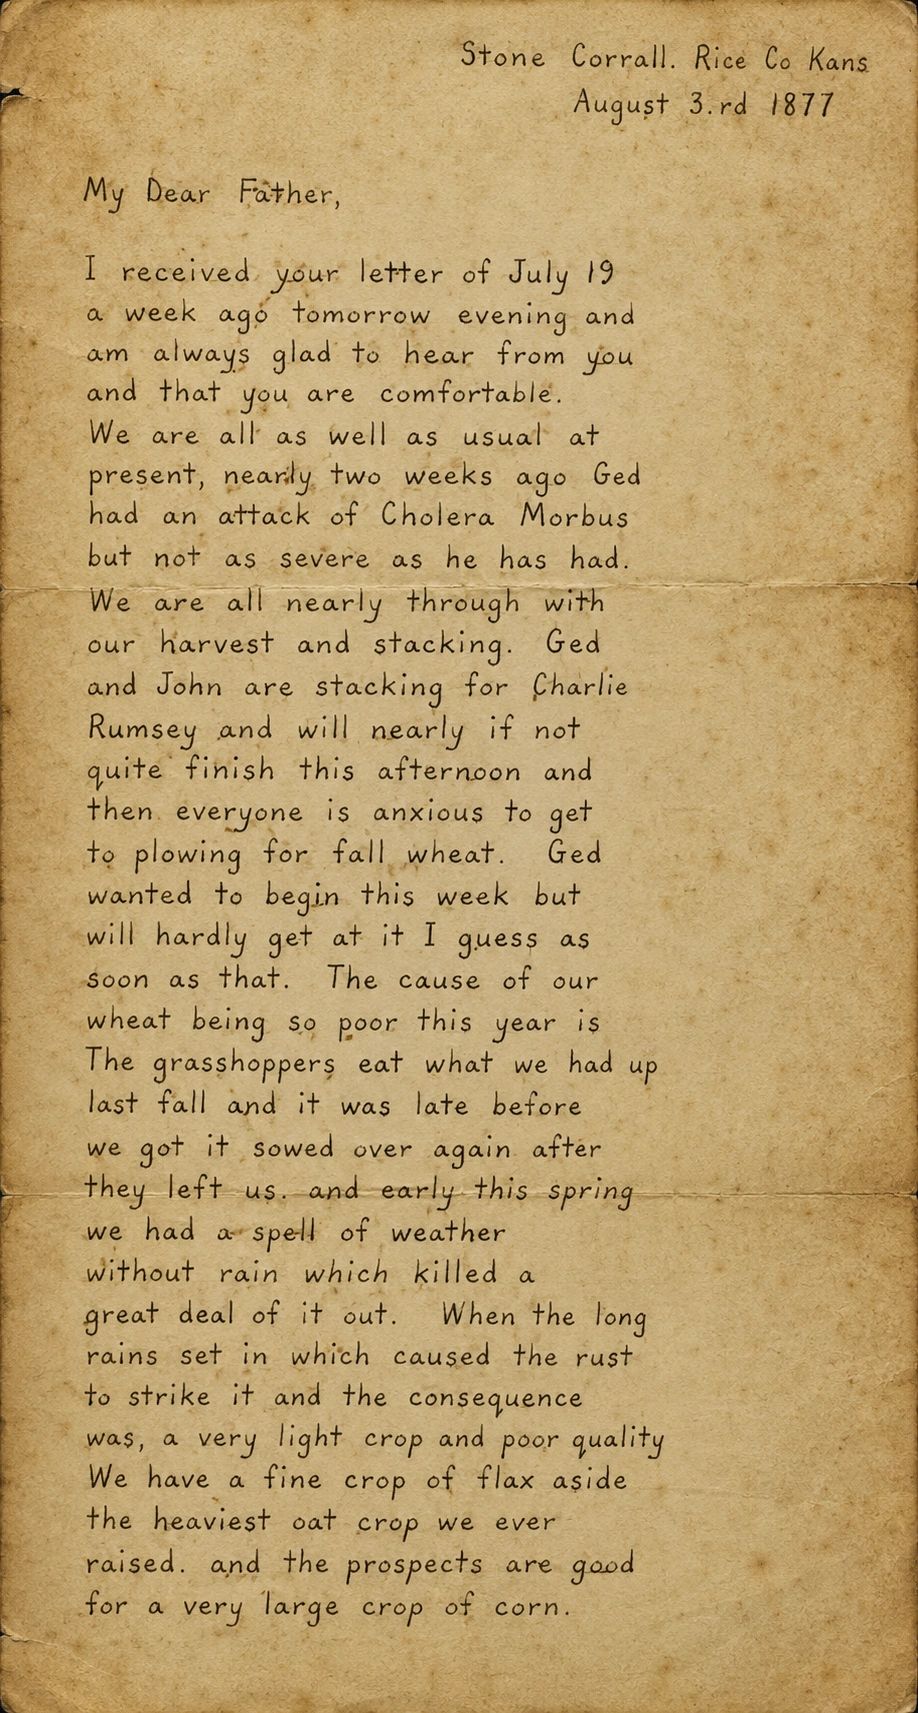 Stone Corrall. Rice Co Kans
August 3.rd 1877
My Dear Father,
I received your letter of July 19
a week ago tomorrow evening and
am always glad to hear from you
and that you are comfortable.
We are all as well as usual at
present, nearly two weeks ago Ged
had an attack of Cholera Morbus
but not as severe as he has had.
We are all nearly through with
our harvest and stacking. Ged
and John are stacking for Charlie
Rumsey and will nearly if not
quite finish this afternoon and
then everyone is anxious to get
to plowing for fall wheat. Ged
wanted to begin this week but
will hardly get at it I guess as
soon as that. The cause of our
wheat being so poor this year is
The grasshoppers eat what we had up
last fall and it was late before
we got it sowed over again after
they left us. and early this spring
we had a spell of weather
without rain which killed a
great deal of it out. When the long
rains set in which caused the rust
to strike it and the consequence
was, a very light crop and poor quality
We have a fine crop of flax aside
the heaviest oat crop we ever
raised. and the prospects are good
for a very large crop of corn.